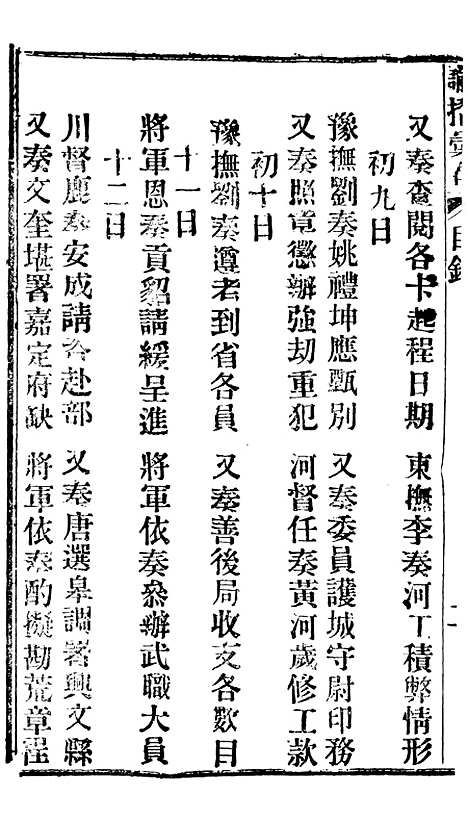 諭摺彙存 目錄
又奏查閱各卡起程日期 東撫李奏河工積弊情形
初九日
豫撫劉奏姚禮坤應甄別 又奏委員護城守尉印務
又奏照章懲辦強劫重犯 河督任奏黃河歲修工款
初十日
豫撫劉奏遵考到省各員 又奏善後局收支各數目
十一日
將軍恩奏貢貂請緩呈進 將軍依奏叅辦武職大員
十二日
川督鹿奏安成請咨赴部 又奏唐選皋調署興文縣
又奏文奎堪署嘉定府缺 將軍依奏酌擬勘荒章程